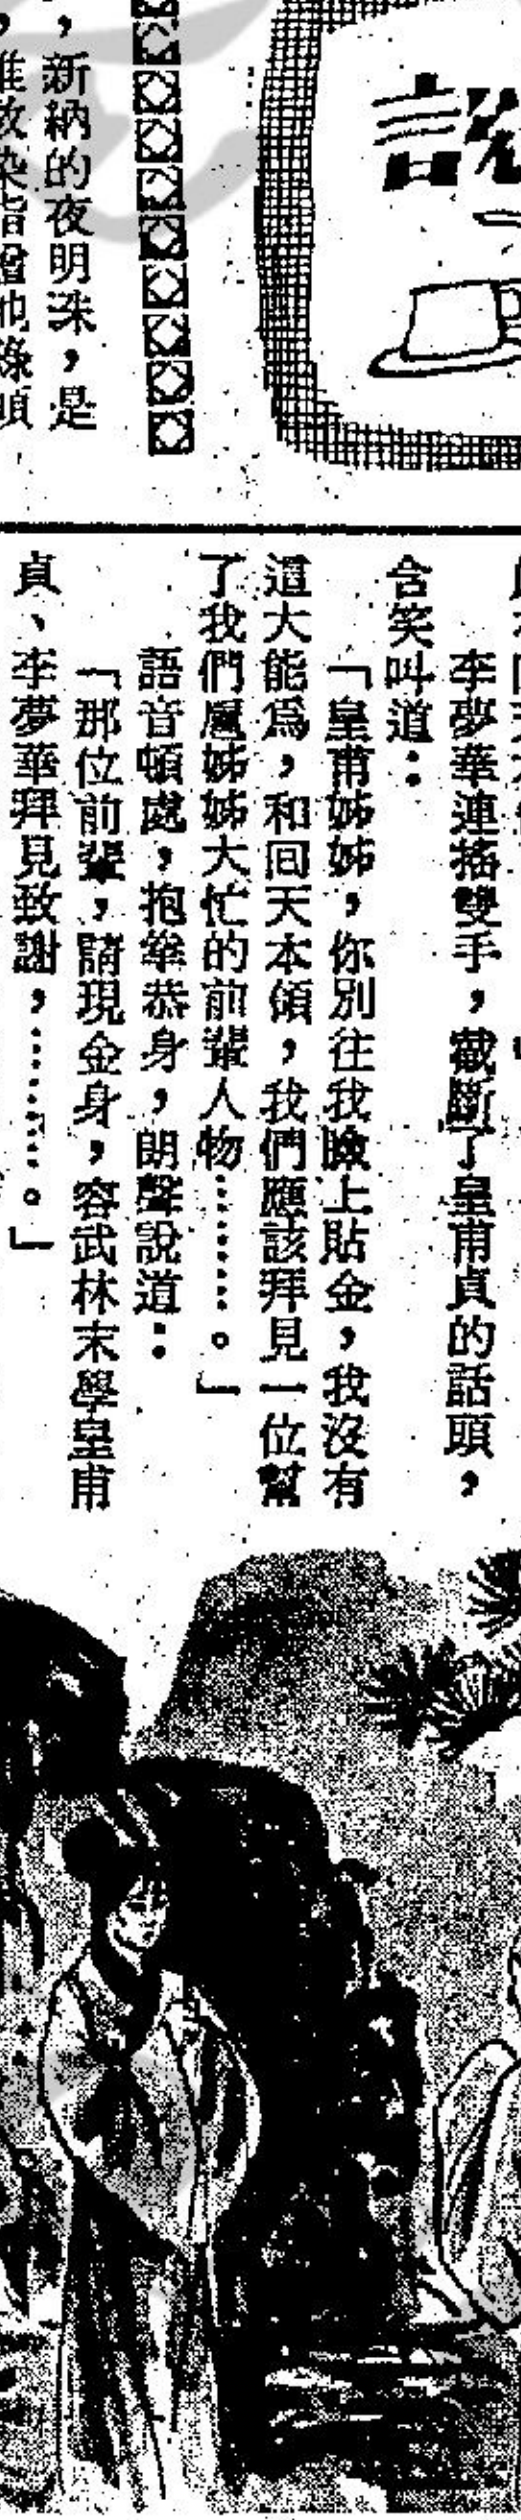 說
，新納的夜明珠，是
李夢華連搖雙手，截斷了皇甫貞的話頭，
含笑叫道：
「皇甫姊姊，你別往我臉上貼金，我沒有
這大能為，和回天本領，我們應該拜見一位幫
了我們盧姊姊大忙的前輩人物…………。」
語音頓處，抱拳恭身，朗聲說道：
「那位前輩，請現金身，容武林末學皇甫
貞、李夢華拜見致謝，…………。」